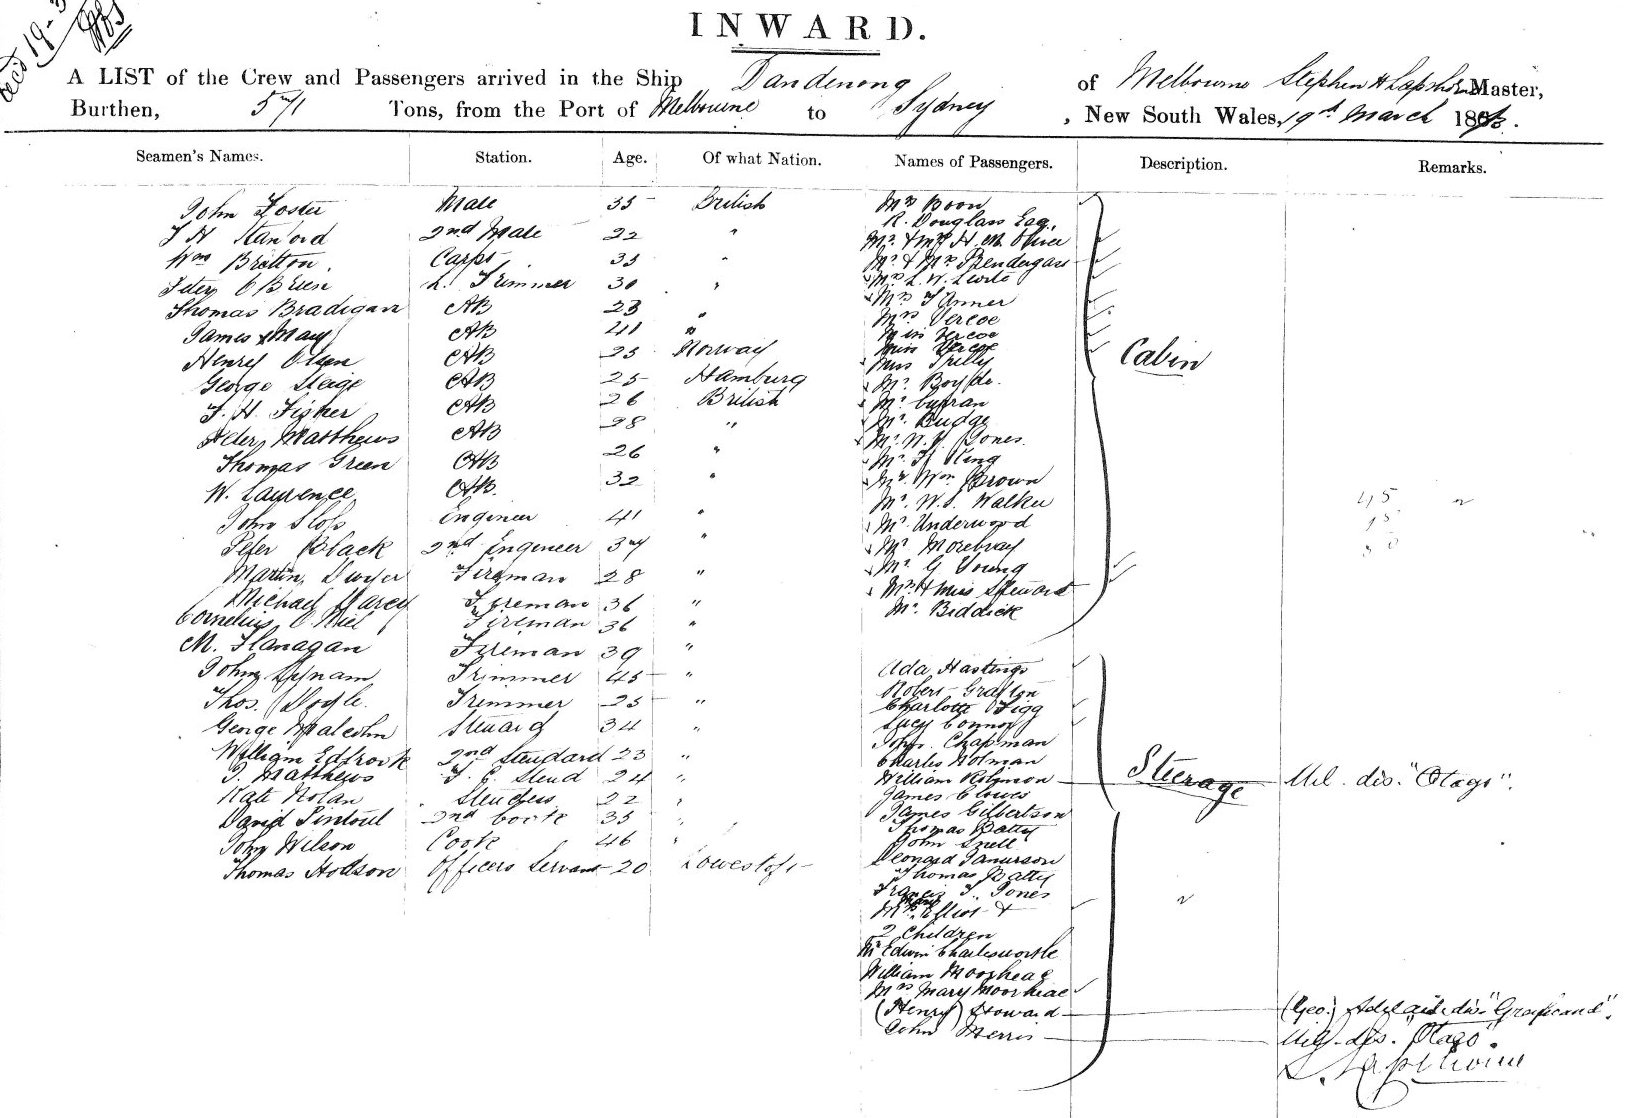 Rec'd 19-3
INWARD.
A LIST of the Crew and Passengers arrived in the Ship Dandenong of Melbourne Stephen H Lapthorne Master,
Burthen, 571 Tons, from the Port of Melbourne to Sydney, New South Wales, 19th March 18
Seamen's Names. Station. Age. Of what Nation. Names of Passengers. Description. Remarks.
John Foster Mate 35 British
2nd Mate 22 "
Wm Bretton. Carpr 35 "
Peter O'Brien L. Trimmer 30 "
Thomas Bradigan AB 23 "
James May AB 41 "
Henry Olsen AB 25 Norway
George AB 25 Hamburg
F. H. Fisher AB 26 British
Matthews AB 28 "
Thomas Green AB 26 "
W. Laurence AB. 32 "
John Sloss Engineer 41 "
Peter Black 2nd Engineer 37 "
Martin Dwyer Fireman 28 "
Michael Darcy Fireman 36 "
Cornelius O'Niel Fireman 36 "
M. Flanagan Fireman 39 "
John Lynam Trimmer 45 "
Thos. Doyle. Trimmer 25 "
George Malcolm Steuard 34 "
William 2nd Steudard 23 "
T. Matthews Steud 24 "
Kate Nolan 22 "
David Sintoul 2nd Cook 35 "
John Wilson Cook 46 "
Thomas Hodson Officers Servant 20 Lowestoft
Mrs Boon
R. Douglass Esq.
Mr. & Mrs H. M. Oliver
Mr & Mrs Prendergast
Mrs L. W. Lewis
Mrs Tanner
Mrs Vercoe
Miss Vercoe
Miss Vercoe
Miss
Mr. Boyde.
Mr.
Mr. Budge
Mr. Jones.
Mr. King
Mr Wm Brown
Mr. W. S. Walker
Mr. Underwood
Mr. Morebray
Mr. G Young
Miss Steward
Mr. Biddick
Cabin
45
15
30
Ada Hastings
Robert Grafton
Charlotte Figg
Lucy Connor
John. Chapman
Charles Holman
William Robinson Mel. dis. "Otago".
James Clowes
James Gilbertson
Thomas Batty
John Snell
Leonard
Thomas Batty
Francis T. Jones
Mrs. Elliot &
2 Children
Mr Edwin Charlesworth
William Moorhead
Mrs Mary Moorhead
(Henry) Howard (Geo.) Adelaide dis.
John Merris Mel. dis. "Otago".
Steerage
S. Lapthorne